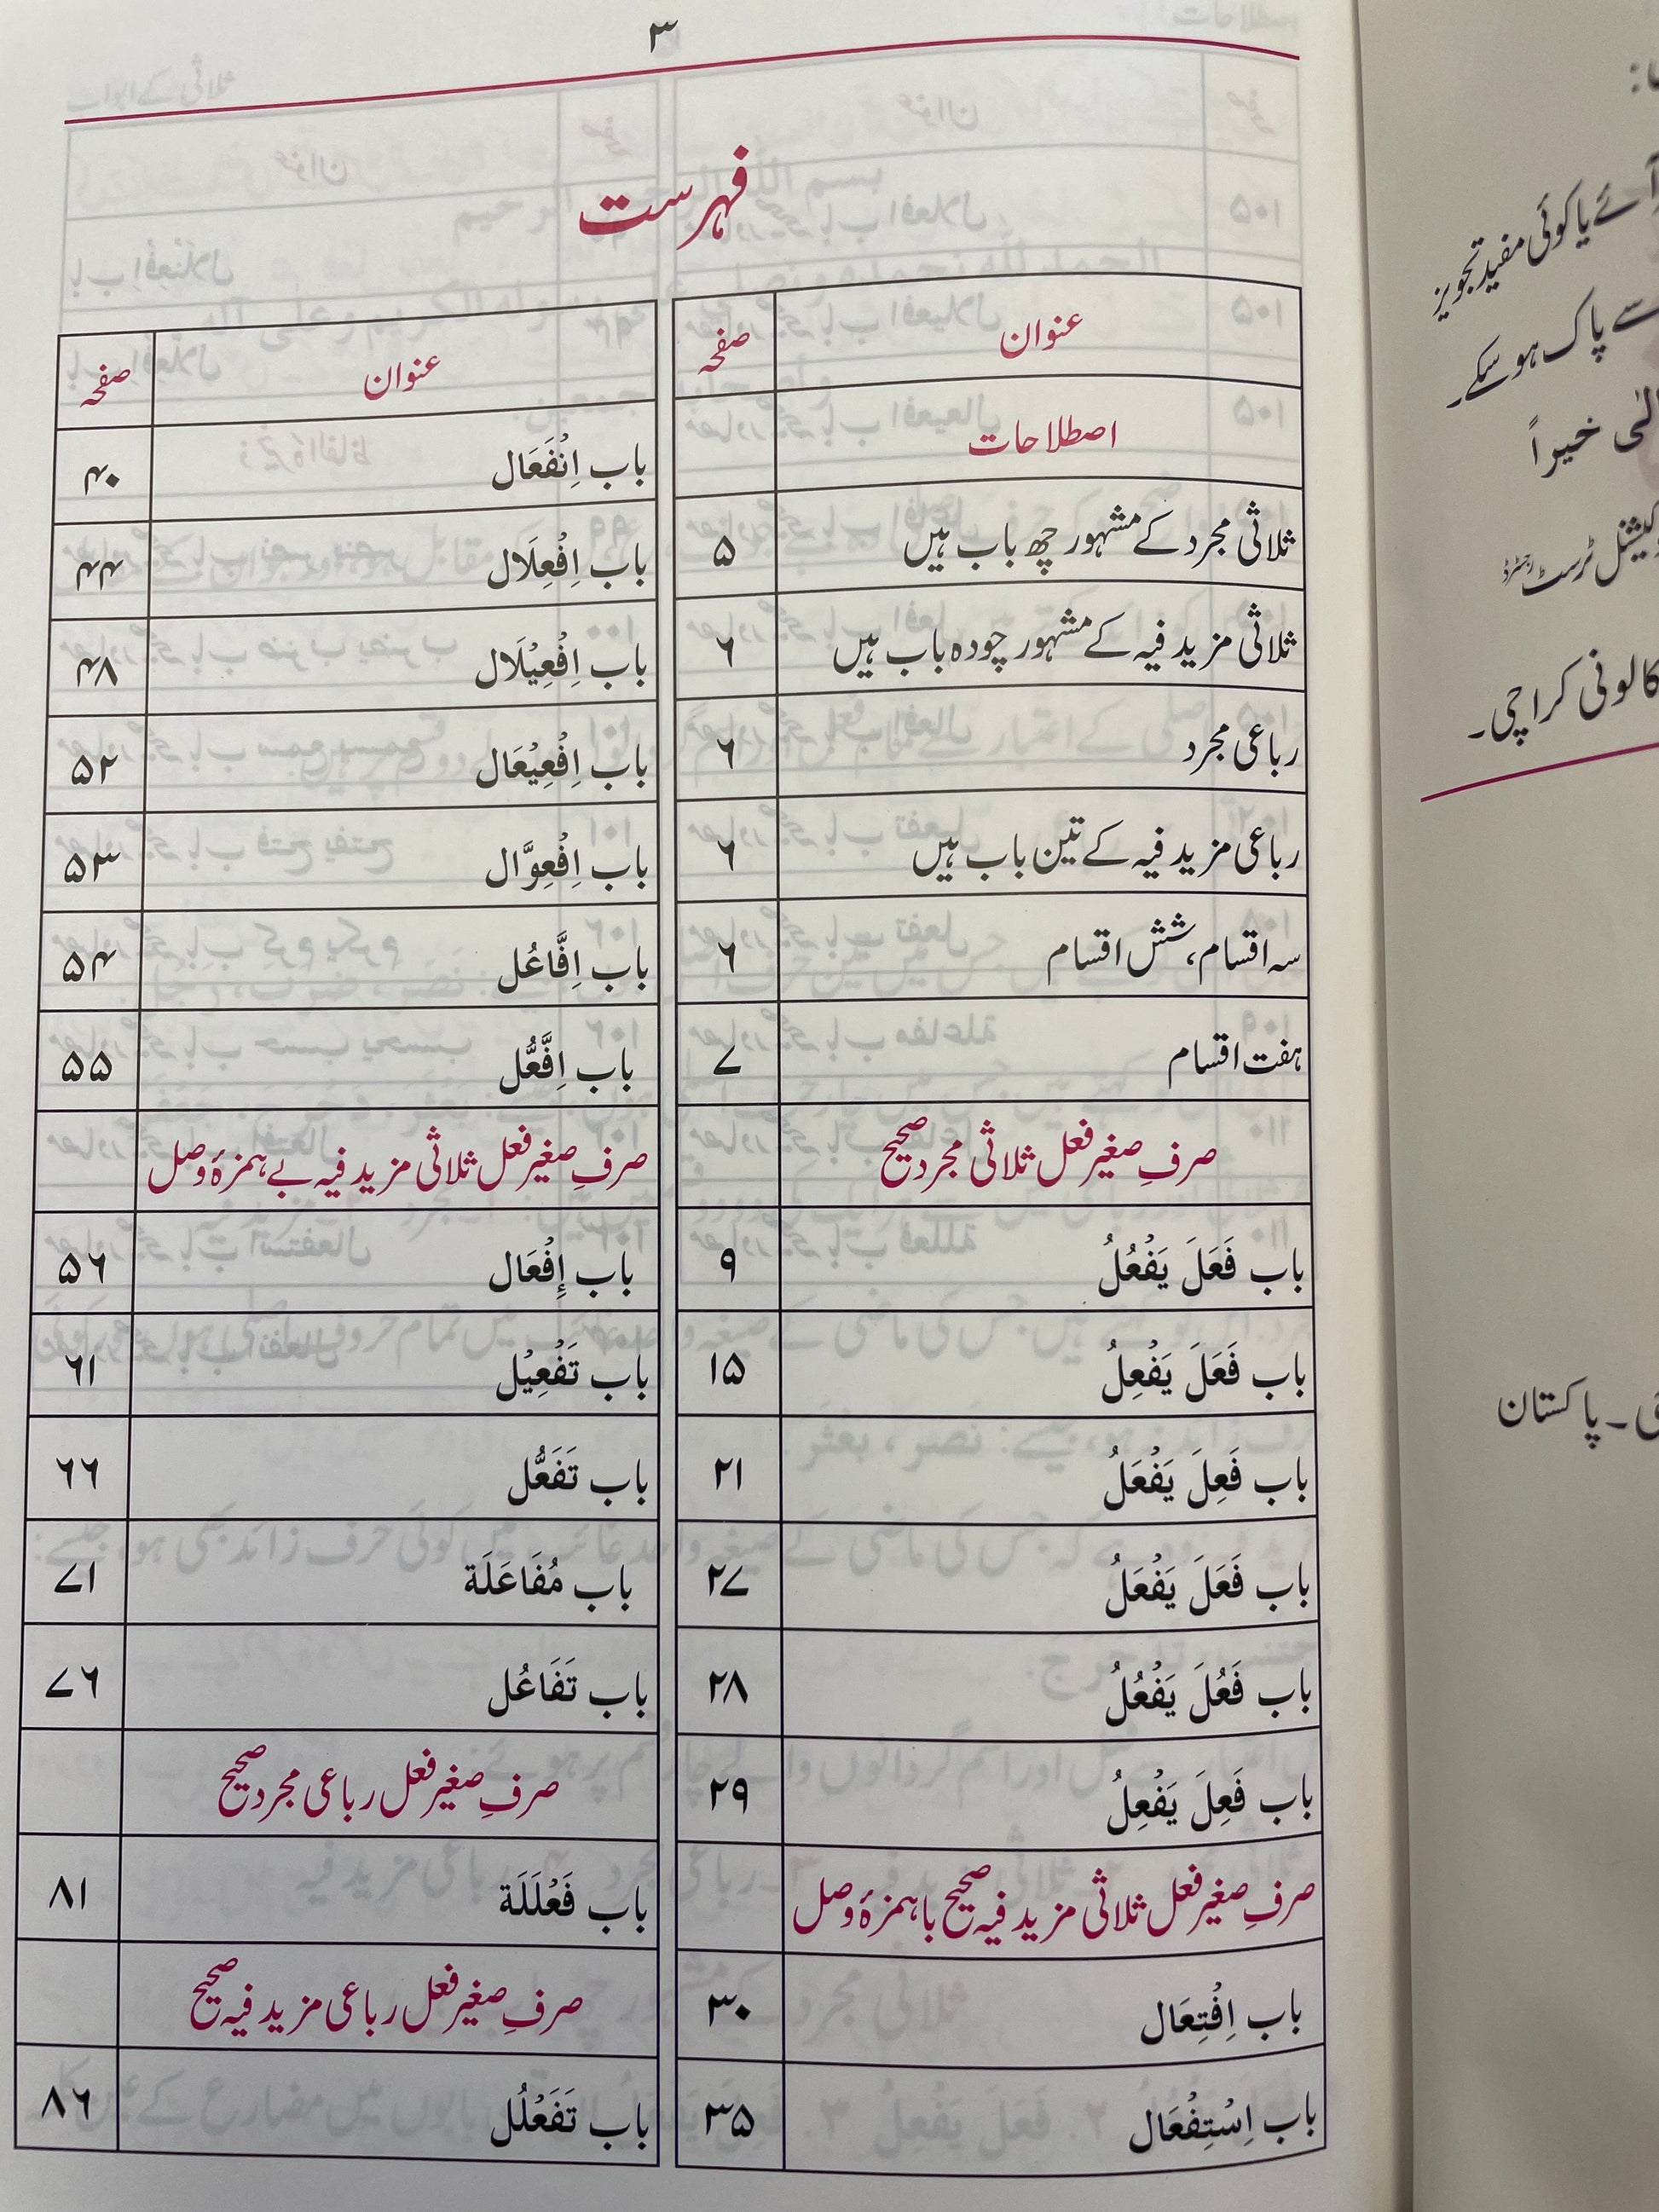 ۳
فہرست
عنوان صفحہ
اصطلاحات
ثلاثی مجرد کے مشہور چھ باب ہیں ۵
ثلاثی مزید فیہ کے مشہور چودہ باب ہیں ۶
رباعی مجرد ۶
رباعی مزید فیہ کے تین باب ہیں ۶
سہ اقسام، شش اقسام ۶
ہفت اقسام ۷
صرفِ صغیر فعل ثلاثی مجرد صحیح
باب فَعَلَ يَفْعُلُ ۹
باب فَعَلَ يَفْعِلُ ۱۵
باب فَعِلَ يَفْعَلُ ۲۱
باب فَعَلَ يَفْعَلُ ۲۷
باب فَعُلَ يَفْعُلُ ۲۸
باب فَعِلَ يَفْعِلُ ۲۹
صرفِ صغیر فعل ثلاثی مزید فیہ صحیح باہمزۂ وصل
باب اِفْتِعَال ۳۰
باب اِسْتِفْعَال ۳۵
عنوان صفحہ
باب اِنْفَعَال ۴۰
باب اِفْعِلَال ۴۴
باب اِفْعِيْلَال ۴۸
باب اِفْعِيْعَال ۵۲
باب اِفْعِوَّال ۵۳
باب اِفَّاعُل ۵۴
باب اِفَّعُّل ۵۵
صرفِ صغیر فعل ثلاثی مزید فیہ بے ہمزۂ وصل
باب إِفْعَال ۵۶
باب تَفْعِيْل ۶۱
باب تَفَعُّل ۶۶
باب مُفَاعَلَة ۷۱
باب تَفَاعُل ۷۶
صرفِ صغیر فعل رباعی مجرد صحیح
باب فَعْلَلَة ۸۱
صرفِ صغیر فعل رباعی مزید فیہ صحیح
باب تَفَعْلُل ۸۶
آئے یا کوئی مفید تجویز
سے پاک ہو سکے۔
خيراً
ٹرسٹ رجسٹرڈ
کالونی کراچی۔
پاکستان